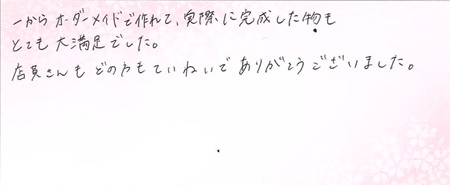 一からオーダーメイドで作れて、実際に完成した物も
とても大満足でした。
店員さんもどの方もていねいでありがとうございました。